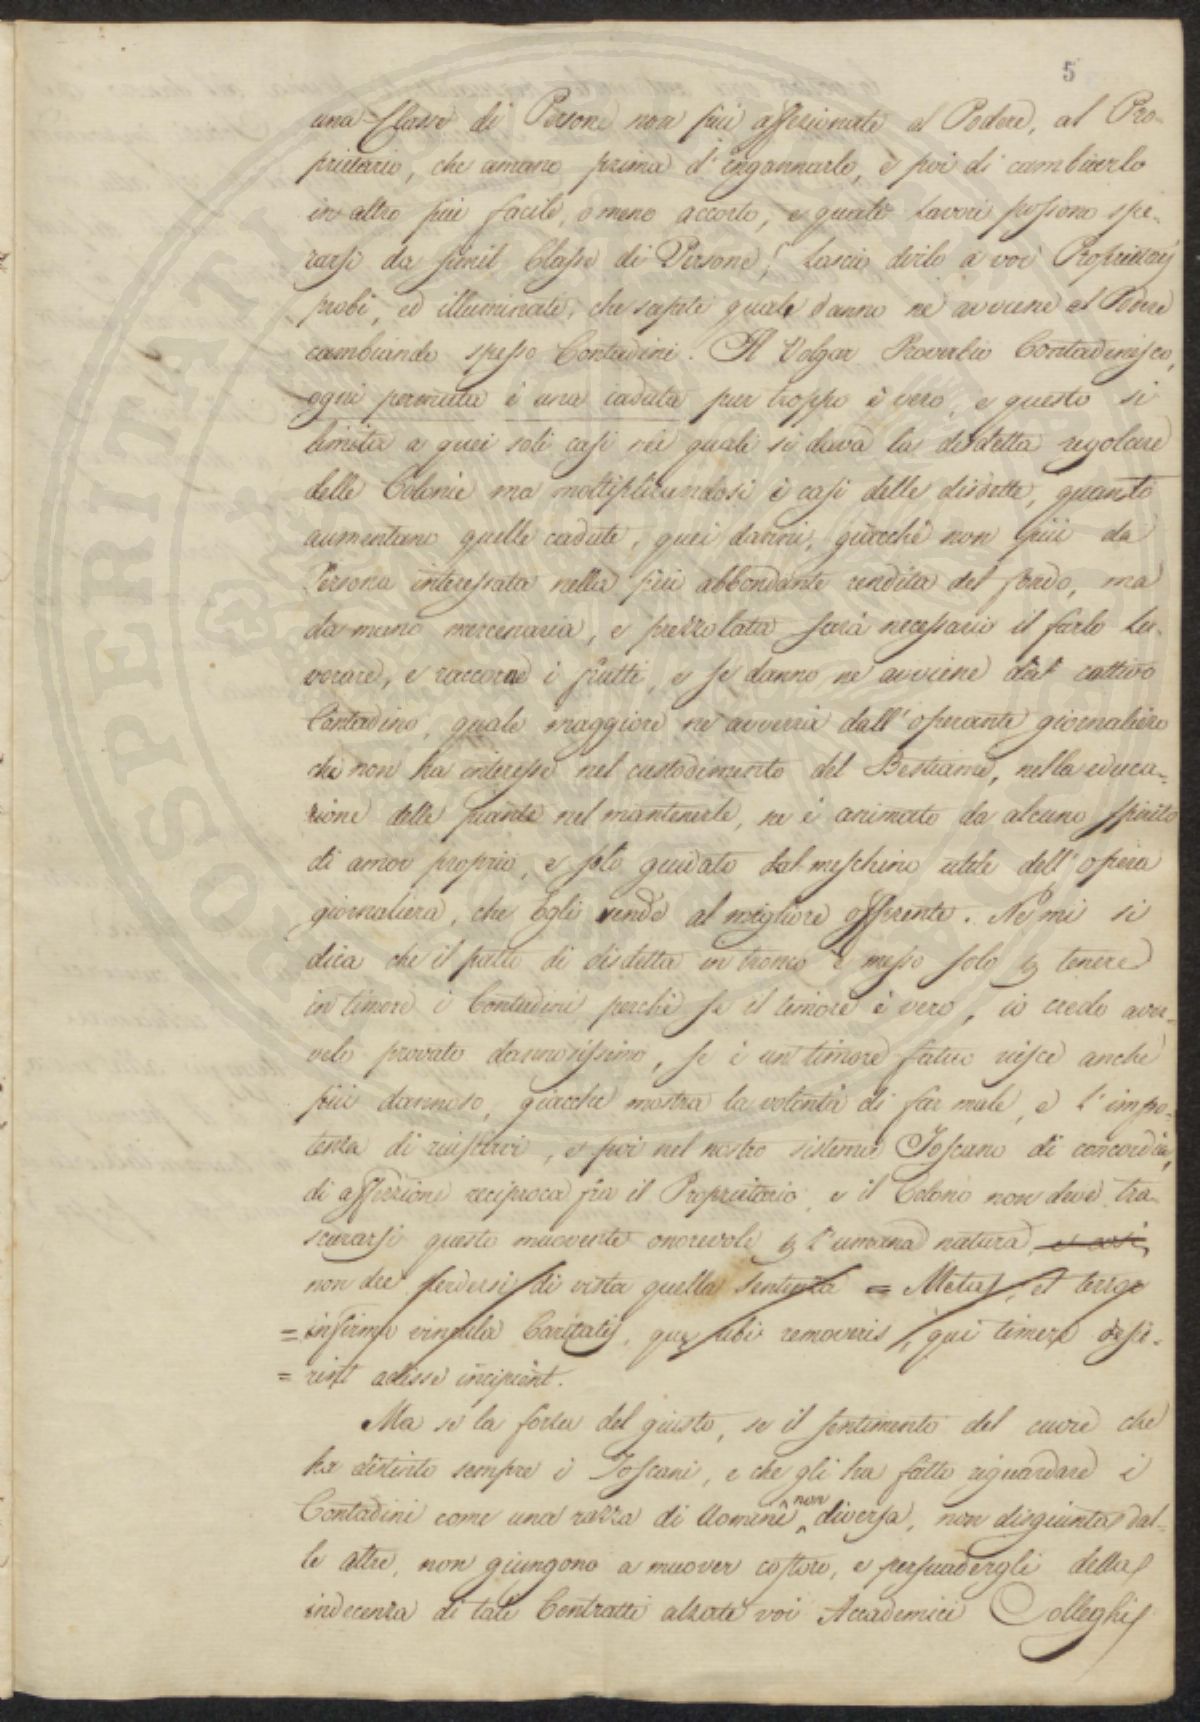 5
una Classe di Persone non più affezionate al Podere, al Pro-
prietario, che amano prima d'ingannarlo, e poi di cambiarlo
in altro più facile, o meno accorto, e quali lavori possono spe-
rarsi da simil Classe di Persone! Lascio dirlo a voi Proprietarj
probi, ed illuminati, che sapete quale danno ne avviene al Podere
cambiando spesso Contadini. Il Volgar Proverbio Contadinesco,
ogni permuta è una caduta pur troppo è vero, e questo si
limita a quei soli casi nei quali si dava la disdetta regolare
delle Colonie ma moltiplicandosi i casi delle disdette, quanto
aumentano quelle cadute, quei danni, giacchè non più da
Persona interessata nella più abbondante rendita del fondo, ma
da mano mercenaria, e prezzolata sarà necessario il farlo la-
vorare, e raccorne i frutti, e se danno ne avviene dal cattivo
Contadino, quale maggiore ne avverrà dall'operante giornaliero
che non ha interesse nel custodimento del Bestiame, nella educa-
zione delle piante nel mantenerle, ne è animato da alcuno spirito
di amor proprio, e solo guidato dal meschino utile dell'opera
giornaliera, che Egli vende al migliore offerente. Ne mi si
dica che il patto di disdetta in tronco è messo solo p tenere
in timore i Contadini perchè se il timore è vero, io credo aver-
velo provato dannosissimo, se è un timore fatuo riesce anche
più dannoso, giacchè mostra la volontà di far male, e l'impo-
tenza di riuscirvi, e poi nel nostro sistema Toscano di concordia,
di affezione reciproca fra il Proprietario, e il Colono non deve tra-
scurarsi questo muovente onorevole p l'umana natura, e così,
non dee perdersi di vista quella sentenza = Metus, et terror
= infirma vincula Caritatis, quae ubi removeris, qui timere desie-
= rint odisse incipient.
Ma se la forza del giusto, se il sentimento del cuore che
ha distinto sempre i Toscani, e che gli ha fatto riguardare i
Contadini come una razza di Uomini non diversa, non disgiunta dal-
le altre, non giungono a muover costoro, e persuadergli della
indecenza di tali Contratti alzate voi Accademici Colleghi